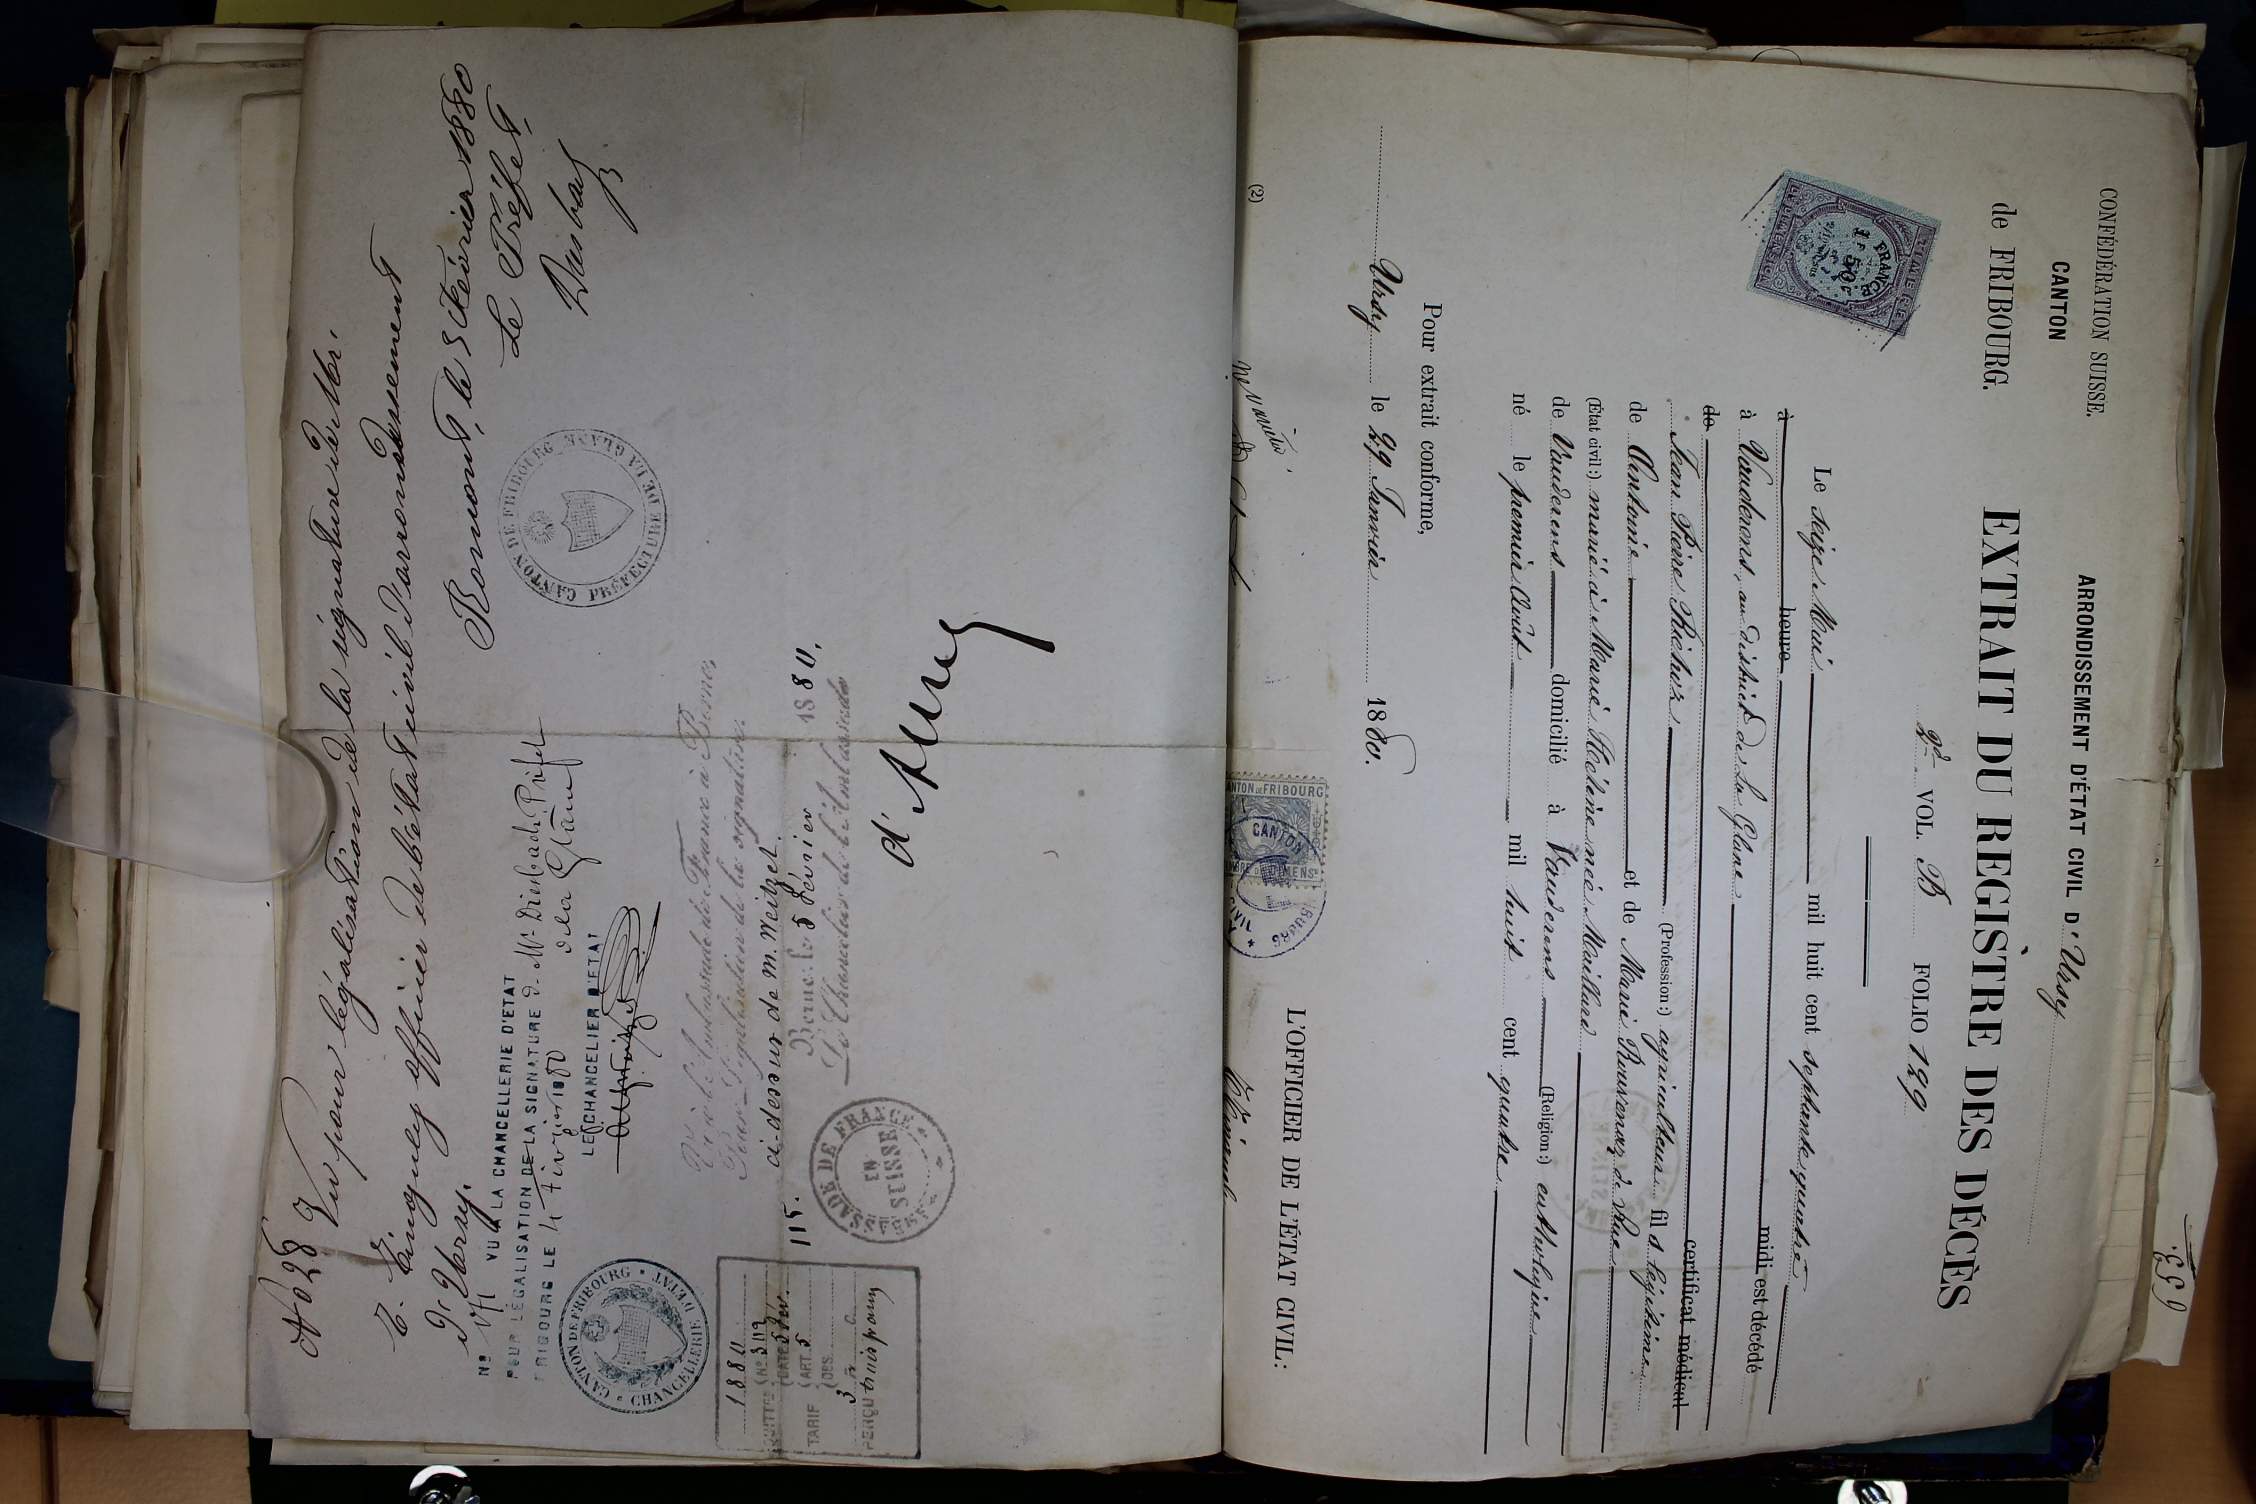 CONFÉDÉRATION SUISSE.
CANTON
de FRIBOURG.
ARRONDISSEMENT D'ÉTAT CIVIL D'Ursy
EXTRAIT DU REGISTRE DES DÉCÈS
2d VOL. B FOLIO 129
Le seize Mai mil huit cent septante quatre
à heure midi est décédé
à Vauderens, au district de la Glane
de certificat médical
Jean Pierre Richoz (Profession:) agriculteur fils légitime
de Antoine et de Marie Bouvenaz de Rue
(État civil:) marié à Marie Hélène née Maillard
de Vauderens domicilié à Vauderens (Religion:) catholique
né le premier Août mil huit cent quatre
Pour extrait conforme,
Ursy le 29 Janvier 1880.
L'OFFICIER DE L'ÉTAT CIVIL:
(2)
FRANCE
50c
CANTON DE FRIBOURG
653.
No 28 Vu pour légalisation de la signature de Mr.
officier de l'état civil d'arrondissement
d'Ursy.
Romont, le 3 Février 1880
Le Préfet,
VU A LA CHANCELLERIE D'ETAT
POUR LÉGALISATION DE LA SIGNATURE de Mr Diesbach Préfet
de la Glâne
FRIBOURG LE 4 février 1880
LE CHANCELIER D'ETAT
CANTON DE FRIBOURG PRÉFECTURE DE LA GLANE
CANTON DE FRIBOURG CHANCELLERIE D'ETAT
Vu à l'Ambassade de France à Berne,
Pour Légalisation de la signature
ci-dessus de M. Weitzel.
Berne le 5 février 1880.
Le Chancelier de l'Ambassade
115.
AMBASSADE DE FRANCE EN SUISSE
1880
No 3119
DATE 5 fév.
TARIF ART. 5
OBS.
3 fr. c.
PERÇU trois francs